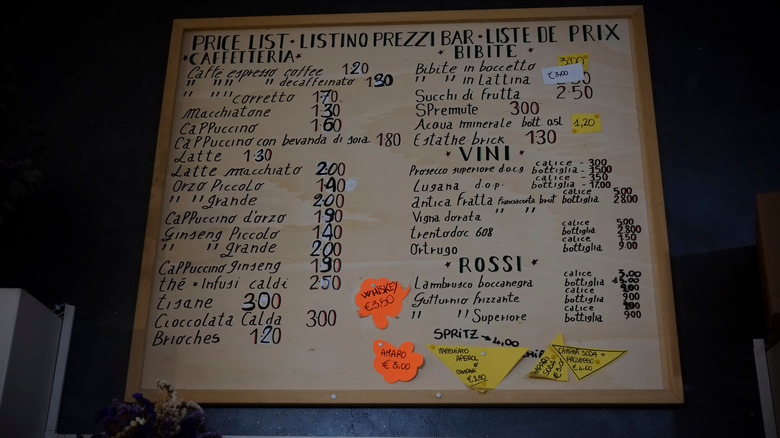 PRICE LIST • LISTINO PREZZI BAR • LISTE DE PRIX
CAFFETTERIA
Caffè espresso coffee 120
" " " decaffeinato 130
" " corretto 170
Macchiatone 130
CaPPuccino 160
CaPPuccino con bevanda di soia 180
Latte 130
Latte macchiato 200
Orzo Piccolo 140
" " grande 200
CaPPuccino d'orzo 190
Ginseng Piccolo 140
" " grande 200
CaPPuccino Ginseng 190
thé • Infusi caldi 250
tisane 300
Cioccolata Calda 300
Brioches 120
BIBITE
Bibite in boccetto 3,00
" " in lattina €3,00
Succhi di frutta 2 50
SPremute 300
Acqua minerale bott. 1,20
Estathe brick 130
VINI
Prosecco superiore d.o.c.g calice - 300
bottiglia - 1500
Lugana d.o.p. calice - 350
bottiglia - 17.00
antica Fratta Franciacorta brut calice 500
bottiglia 2800
Vigna dorata " "
trentodoc 608 calice 500
bottiglia 2800
Ortrugo calice 150
bottiglia 9.00
ROSSI
Lambrusco boccanegra calice 3,00
bottiglia
Gutturnio frizzante calice
bottiglia 900
" Superiore calice
bottiglia 900
WHISKEY
€3,50
AMARO
€ 3.00
SPRITZ → 4,00
MACCHIATO
APEROL
o
CAMPARI
CAMPARI
SODA
CAMPARI SODA +
PROSECCO
€ 4.00